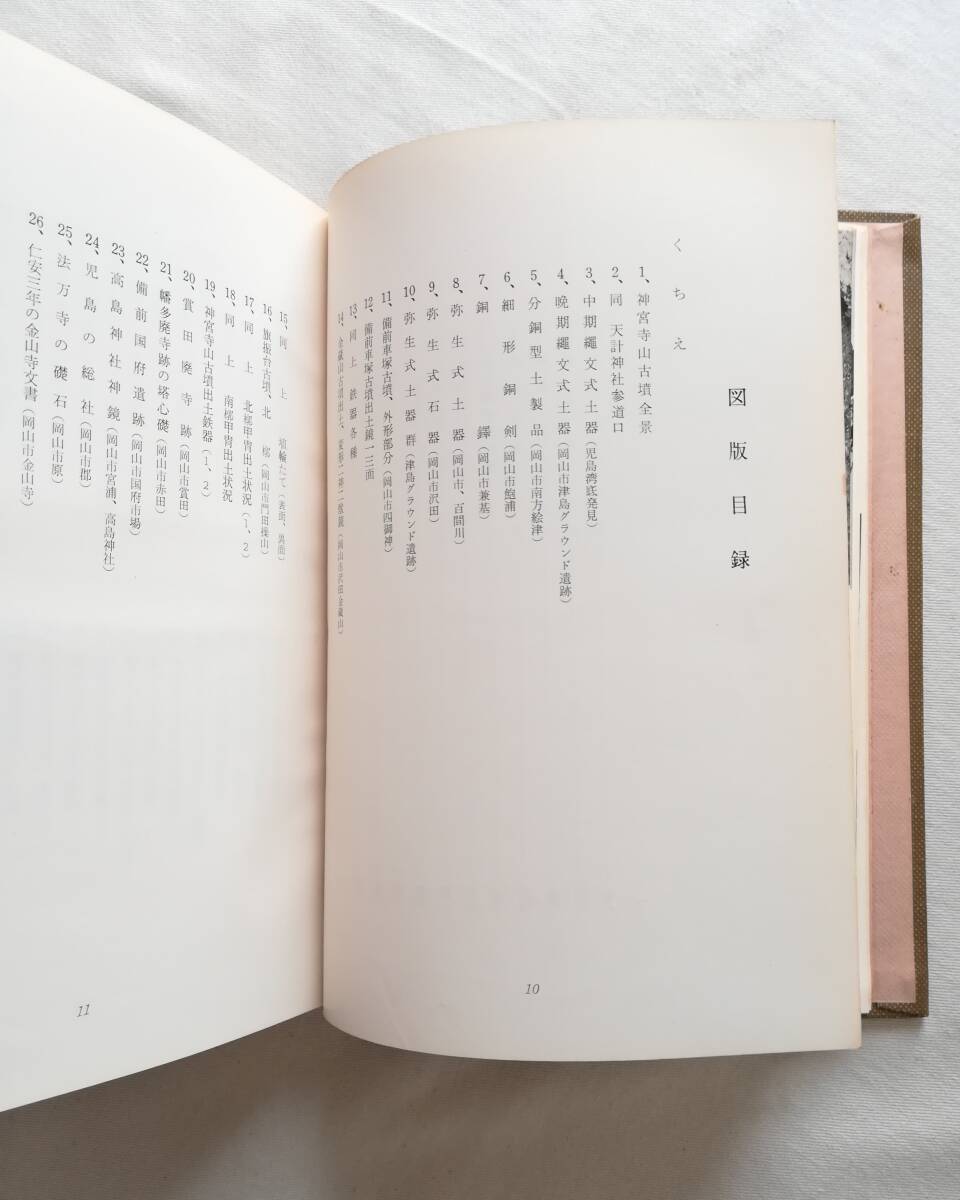 図版目録
くちえ
1、神宮寺山古墳全景
2、同　天計神社参道口
3、中期縄文式土器（児島湾底発見）
4、晩期縄文式土器（岡山市津島グラウンド遺跡）
5、分銅型土製品（岡山市南方絵津）
6、細形銅剣（岡山市飽浦）
7、銅鐸（岡山市兼基）
8、弥生式土器（岡山市、百間川）
9、弥生式石器（岡山市沢田）
10、弥生式土器群（津島グラウンド遺跡）
11、備前車塚古墳、外形部分（岡山市四御神）
12、備前車塚古墳出土鏡一三面
13、同上　鉄器各種
14、金蔵山古墳出土、変形二神二獣鏡（岡山市沢田金蔵山）
10
15、同　上　埴輪たて（表面、裏面）
16、旗振台古墳、北　槨（岡山市門田操山）
17、同　上　北槨甲冑出土状況（1、2）
18、同　上　南槨甲冑出土状況
19、神宮寺山古墳出土鉄器（1、2）
20、賞田廃寺跡（岡山市賞田）
21、幡多廃寺跡の塔心礎（岡山市赤田）
22、備前国府遺跡（岡山市国府市場）
23、高島神社神鏡（岡山市宮浦、高島神社）
24、児島の総社（岡山市郡）
25、法万寺の礎石（岡山市原）
26、仁安三年の金山寺文書（岡山市金山寺）
11